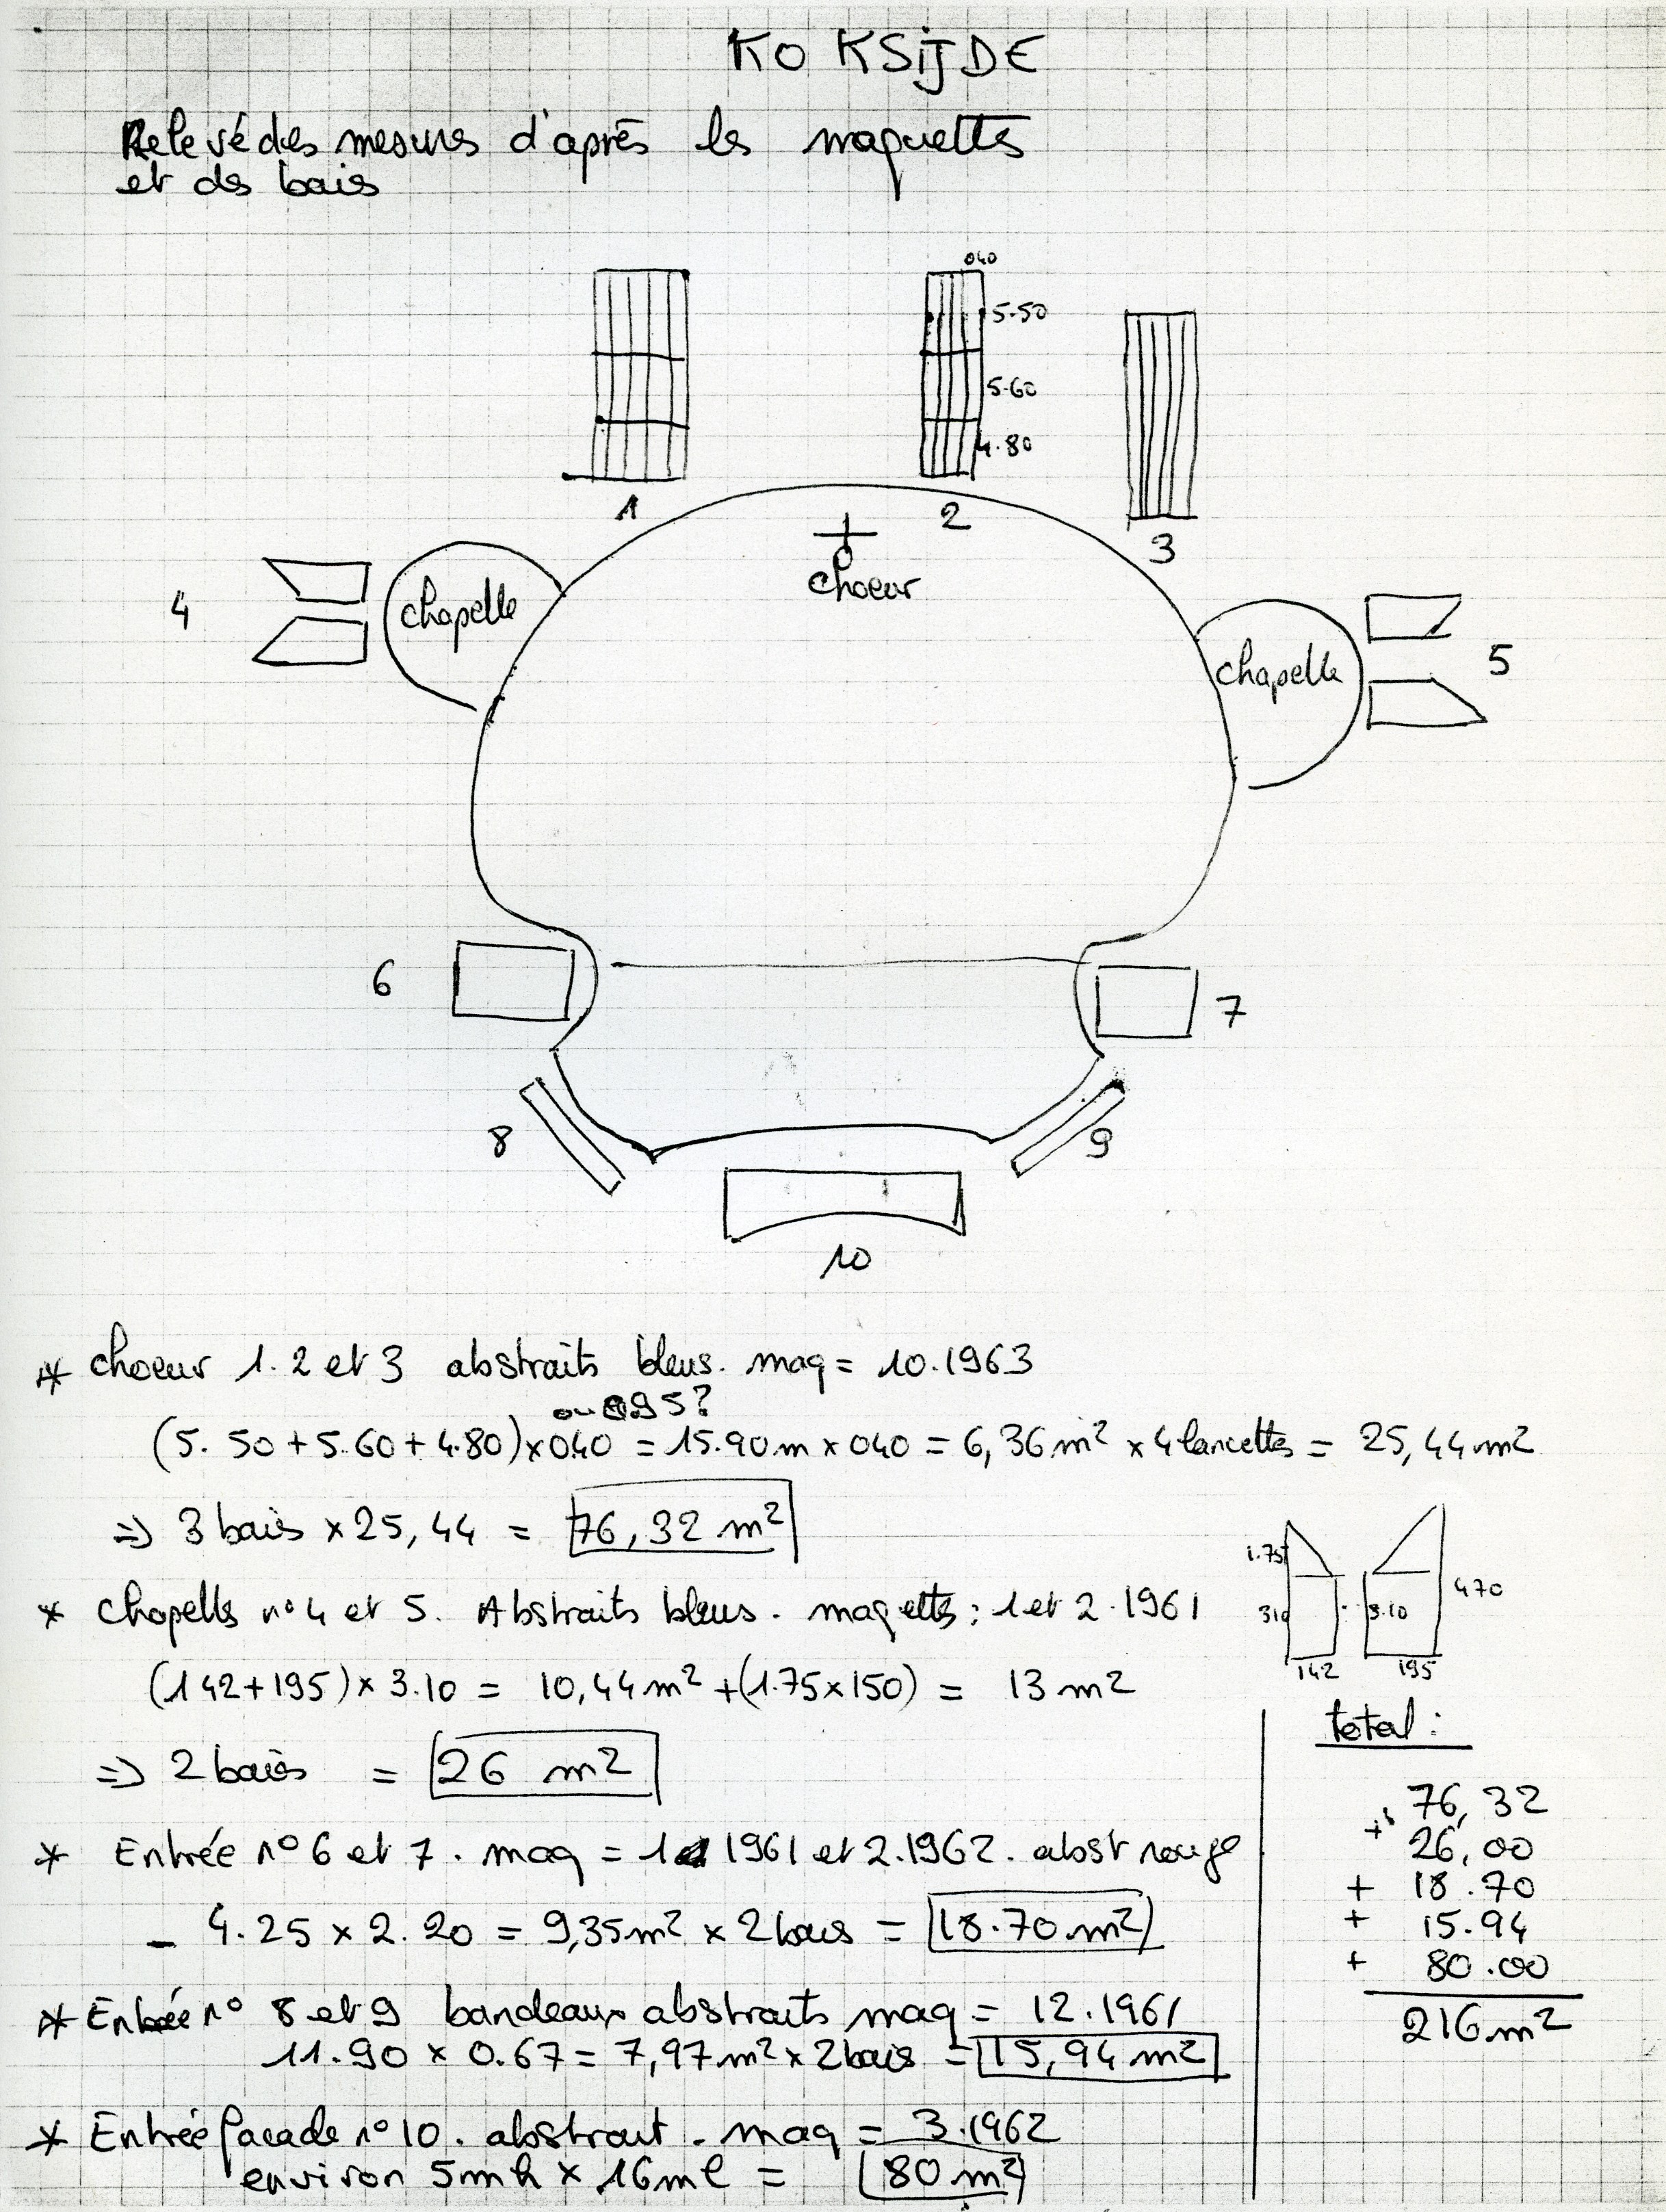 KOKSIJDE
Relevé des mesures d'après les maquettes
et des baies
040
5.50
5.60
4.80
1
2
3
choeur
4
chapelle
chapelle
5
6
7
8
9
10
* choeur 1. 2 et 3 abstraits bleus. maq = 10.1963
ou 0.95?
(5.50 + 5.60 + 4.80) x 0.40 = 15.90 m x 040 = 6,36 m² x 4 lancettes = 25,44 m²
=> 3 baies x 25,44 = 76,32 m²
1.75
310
3.10
470
142
195
* Chapelles n° 4 et 5. Abstraits bleus. maquettes : 1 et 2.1961
(142 + 195) x 3.10 = 10,44 m² + (1.75 x 150) = 13 m²
=> 2 baies = 26 m²
* Entrée n° 6 et 7. maq = 1 1961 et 2.1962. abst rouge
- 4.25 x 2.20 = 9,35 m² x 2 baies = 18.70 m²
* Entrée n° 8 et 9 bandeaux abstraits maq = 12.1961
11.90 x 0.67 = 7,97 m² x 2 baies = 15,94 m²
* Entrée façade n° 10. abstrait. maq = 3.1962
environ 5m h x 16m l = 80 m²
total :
76,32
+ 26,00
+ 18.70
+ 15.94
+ 80.00
216 m²